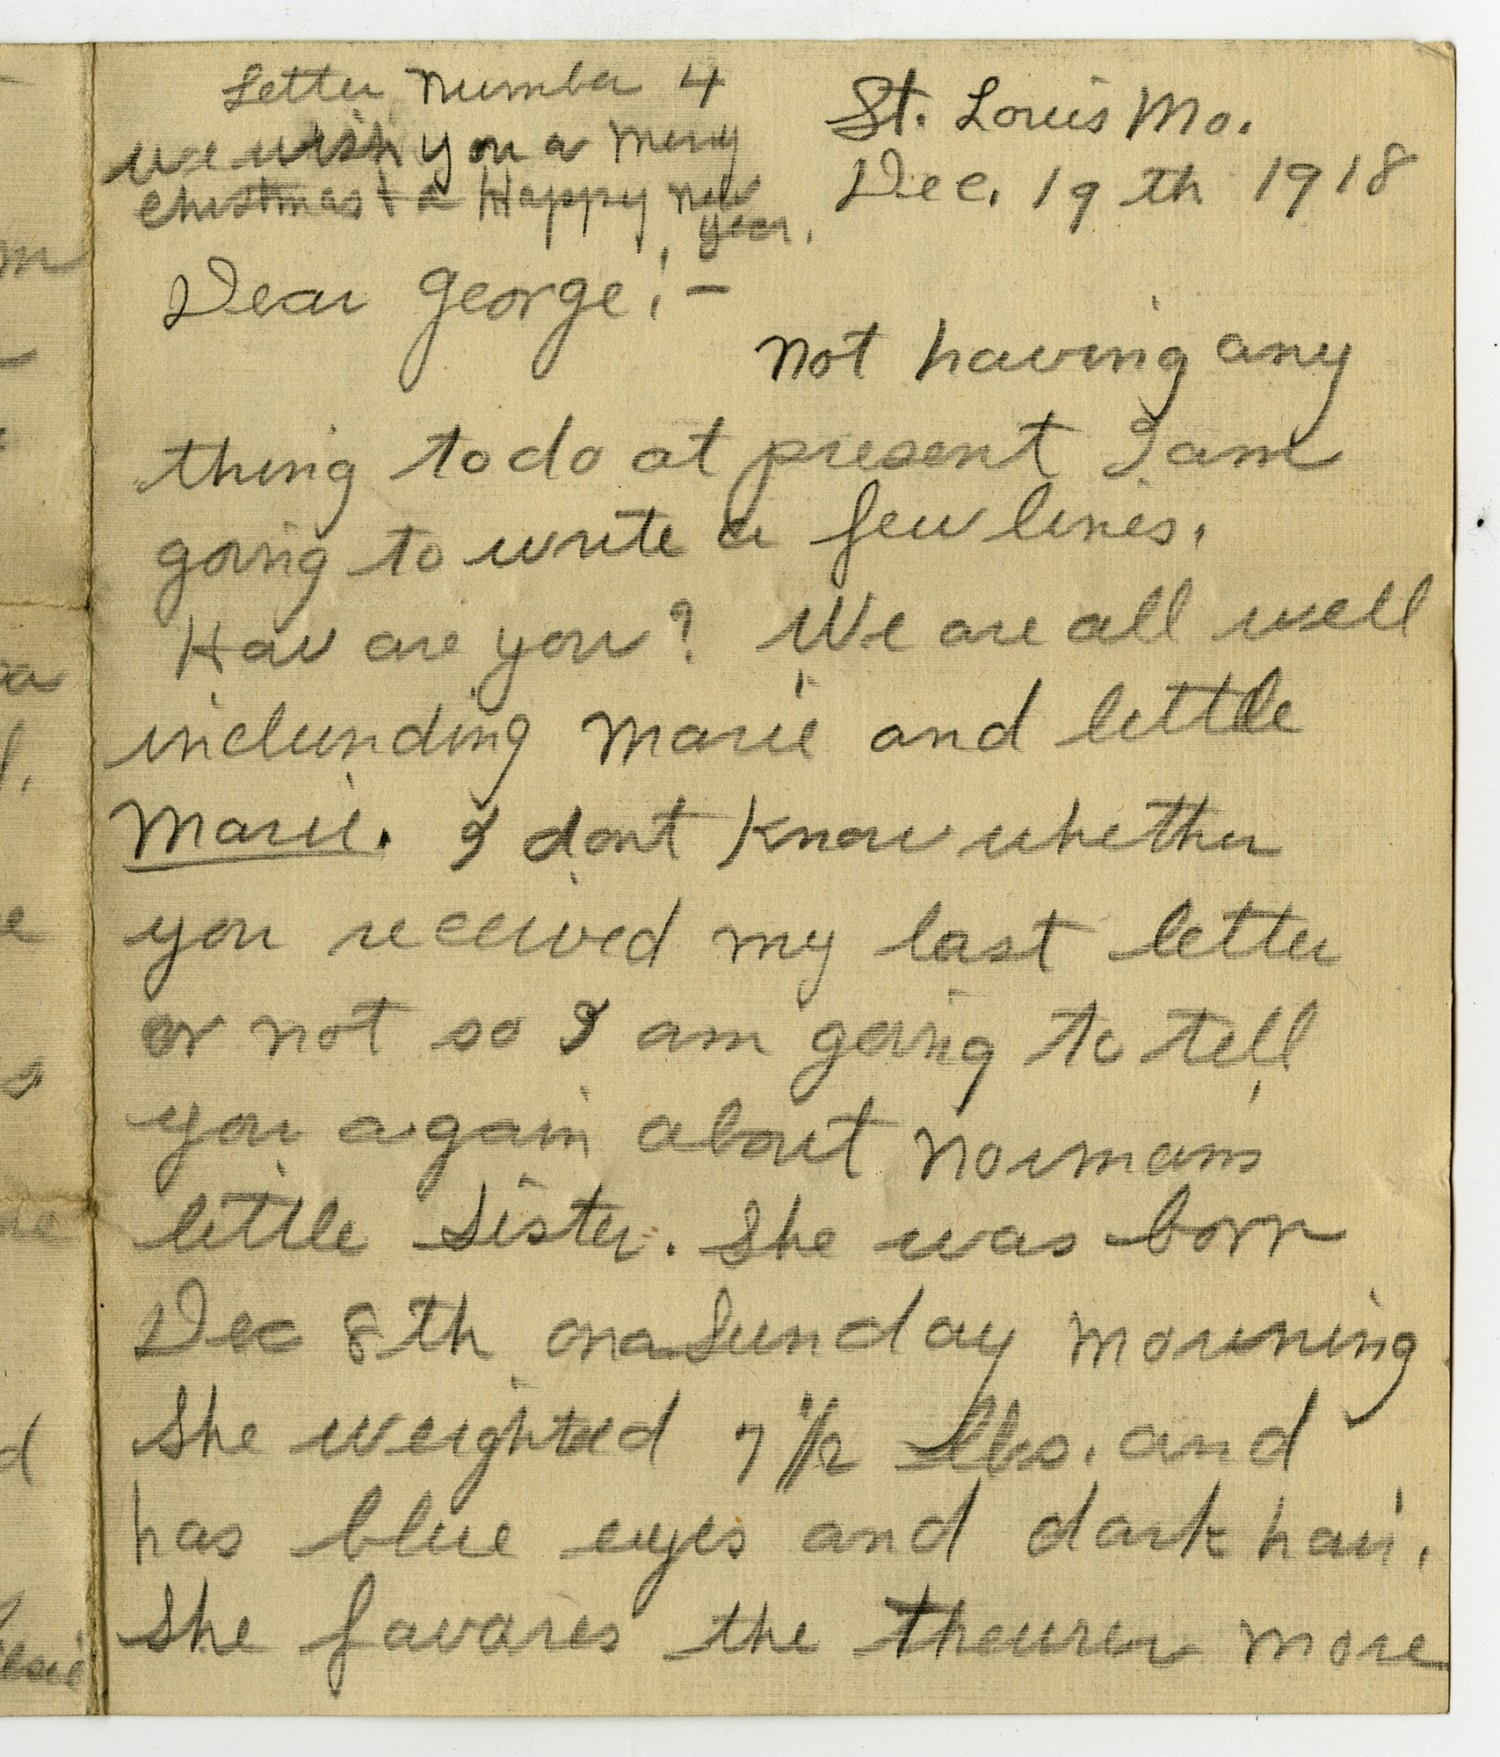 Letter number 4
we wish you a Merry
Christmas & a Happy New
year.
St. Louis Mo.
Dec. 19th 1918
Dear George:-
Not having any
thing to do at present I am
going to write a few lines.
How are you? We are all well
inclunding Marie and little
Marie. I dont know whether
you received my last letter
or not so I am going to tell
you again about Norman's
little sister. She was born
Dec 8th on a Sunday mourning
She weighted 7 1/2 lbs. and
has blue eyes and dark hair.
She favares the more